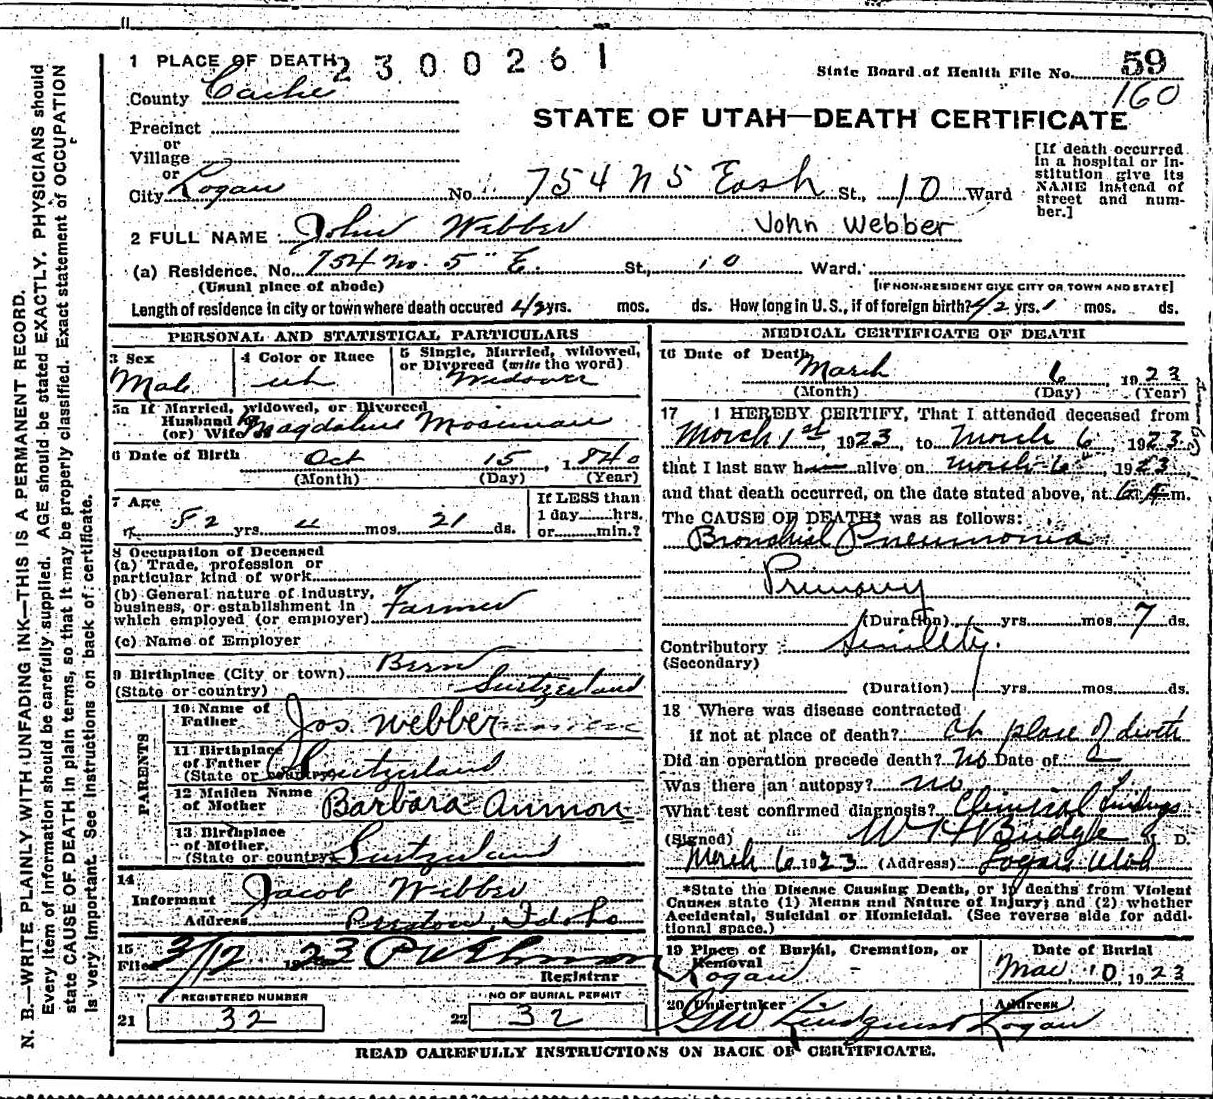 1 PLACE OF DEATH 2300261
59
State Board of Health File No.
160
County Cache
STATE OF UTAH—DEATH CERTIFICATE
Precinct
or
Village
or
City Logan No. 754 N 5 East St., 10 Ward
[If death occurred in a hospital or institution give its NAME instead of street and number.]
2 FULL NAME John Webber John Webber
(a) Residence. No. 754 No. 5" E. St., 10 Ward.
(Usual place of abode) [IF NON-RESIDENT GIVE CITY OR TOWN AND STATE]
Length of residence in city or town where death occured 42 yrs. mos. ds. How long in U.S., if of foreign birth? 42 yrs. mos. ds.
PERSONAL AND STATISTICAL PARTICULARS
3 Sex
Male
4 Color or Race
wh
5 Single, Married, widowed,
or Divorced (write the word)
Widower
5a If Married, widowed, or Divorced
Husband of
(or) Wife of Magdalena Mosiman
6 Date of Birth Oct 15, 1840
(Month) (Day) (Year)
7 Age
82 yrs 4 mos 21 ds.
If LESS than
1 day hrs.
or min.?
8 Occupation of Deceased
(a) Trade, profession or
particular kind of work
(b) General nature of industry,
business, or establishment in
which employed (or employer) Farmer
(c) Name of Employer
9 Birthplace (City or town) Bern
(State or country) Switzerland
PARENTS
10 Name of
Father Jos. Webber
11 Birthplace
of Father
(State or country) Switzerland
12 Maiden Name
of Mother Barbara Ammon
13 Birthplace
of Mother.
(State or country) Switzerland
14
Informant Jacob Webber
Address Preston, Idaho
15
Filed 3/12 1923
Registrar
REGISTERED NUMBER
21 32
NO OF BURIAL PERMIT
22 32
MEDICAL CERTIFICATE OF DEATH
16 Date of Death March 6, 1923
(Month) (Day) (Year)
17 I HEREBY CERTIFY, That I attended deceased from
March 1st, 1923, to March 6, 1923.
that I last saw him alive on March 6, 1923,
and that death occurred, on the date stated above, at 6 m.
The CAUSE OF DEATH* was as follows:
Bronchial Pneumonia
Primary
(Duration) yrs. mos. 7 ds.
Contributory Senility.
(Secondary)
(Duration) yrs. mos. ds.
18 Where was disease contracted
if not at place of death? at place of death
Did an operation precede death? No Date of
Was there an autopsy? no
What test confirmed diagnosis? Clinical findings
(Signed) W H Budge D.
March 6 1923 (Address) Logan Utah
*State the Disease Causing Death, or in deaths from Violent
Causes state (1) Means and Nature of Injury; and (2) whether
Accidental, Suicidal or Homicidal. (See reverse side for additional space.)
19 Place of Burial, Cremation, or
Removal
Logan
Date of Burial
Mar, 10, 1923
20 Undertaker
GW Lindquist
Address
Logan
READ CAREFULLY INSTRUCTIONS ON BACK OF CERTIFICATE.
N. B.—WRITE PLAINLY WITH UNFADING INK—THIS IS A PERMANENT RECORD.
Every item of information should be carefully supplied. AGE should be stated EXACTLY. PHYSICIANS should
state CAUSE OF DEATH in plain terms, so that it may be properly classified. Exact statement of OCCUPATION
is very important. See instructions on back of certificate.